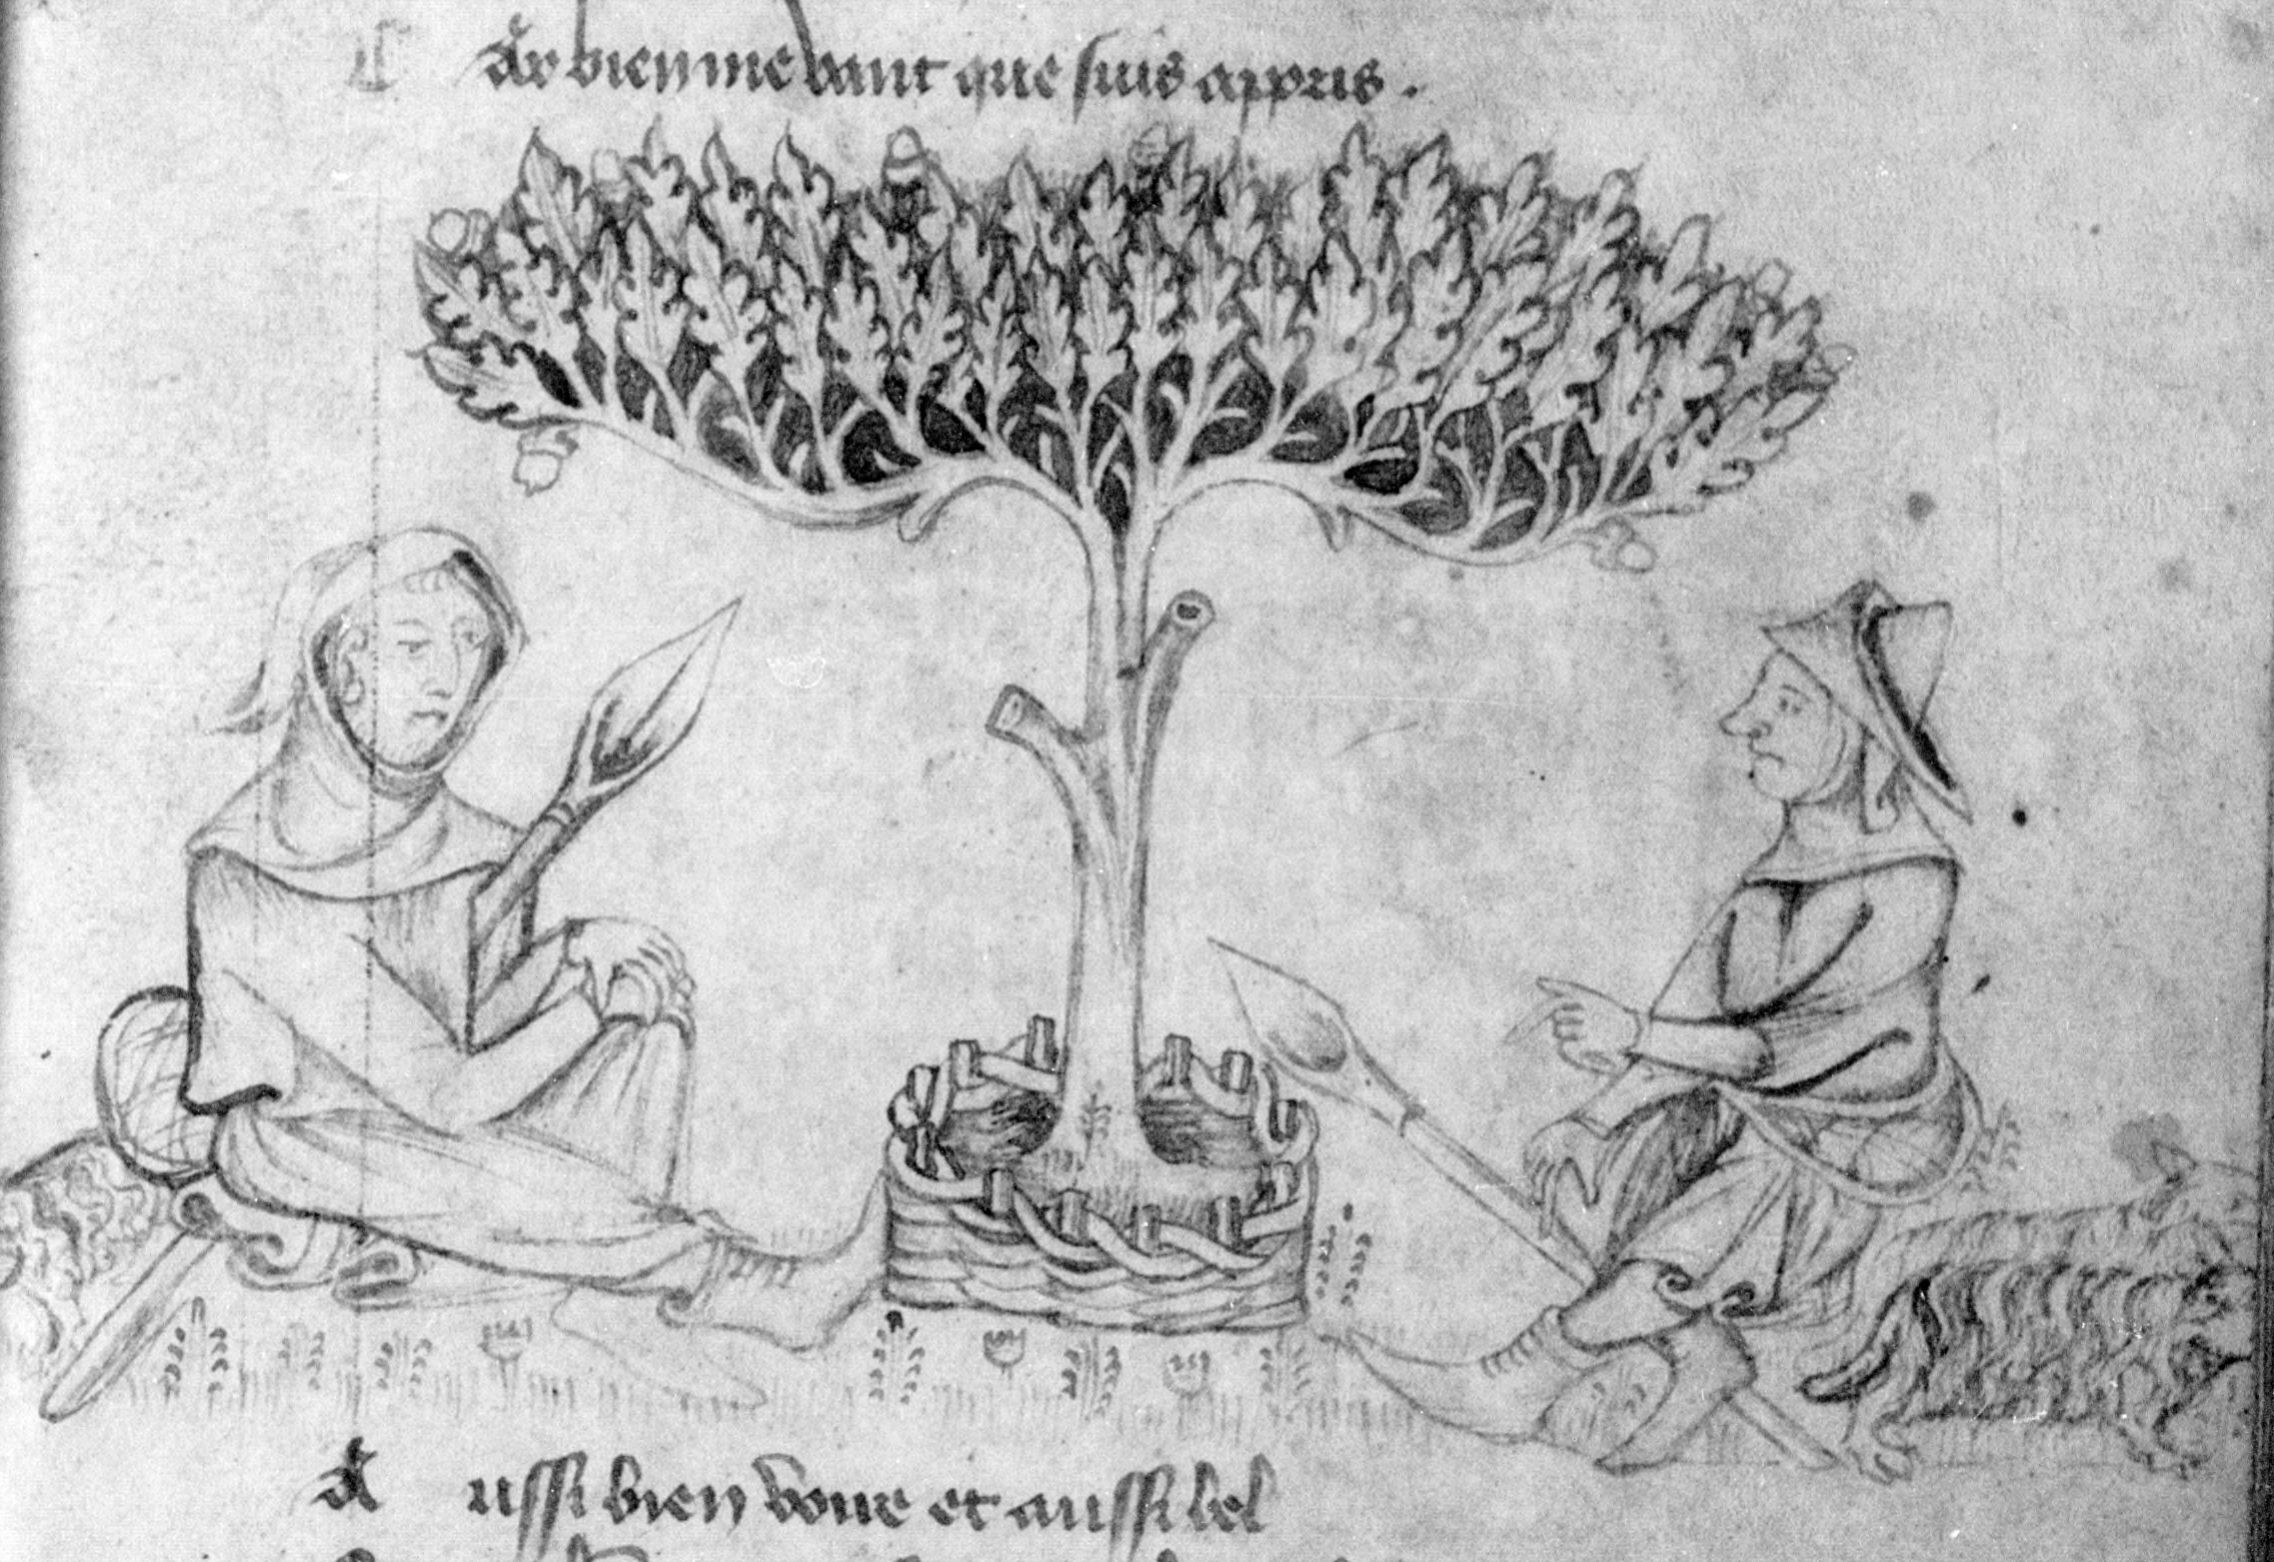 Ar bien me vant que suis appris .
Aussi bien voire et aussi bel